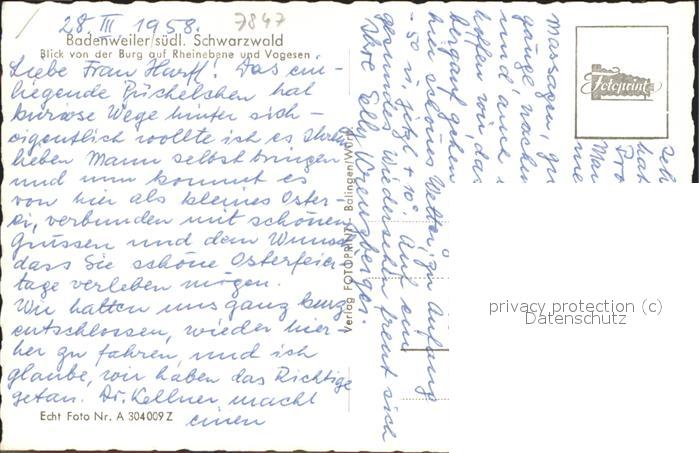 28. III 1958.
7847
Badenweiler/südl. Schwarzwald
Blick von der Burg auf Rheinebene und Vogesen
Liebe Frau Harff! Das ein-
liegende Büchelchen hat
kuriose Wege hinter sich –
eigentlich wollte ich es Ihrem
lieben Mann selbst bringen
und nun kommt es
von hier als kleines Oster-
ei, verbunden mit schönen
Grüssen und dem Wunsch
dass Sie schöne Osterfeier-
tage verleben mögen.
Wir hatten uns ganz kurz
entschlossen, wieder hier-
her zu fahren, und ich
glaube, wir haben das Richtige
getan. Dr. Kellner macht
einen
Echt Foto Nr. A 304 009 Z
Verlag FOTOPRINT - Balingen/Württ.
Fotoprint
seh
hat
Pro
Ma
me
Massagen,
gänge machen
und auch
hoffen wir das
bergauf gehen
hier schönes Wetter, zu Anfang
- 5° u. jetzt + 10°. Auf ein
gesundes Wiedersehen freut sich
Ihre
privacy protection (c)
Datenschutz